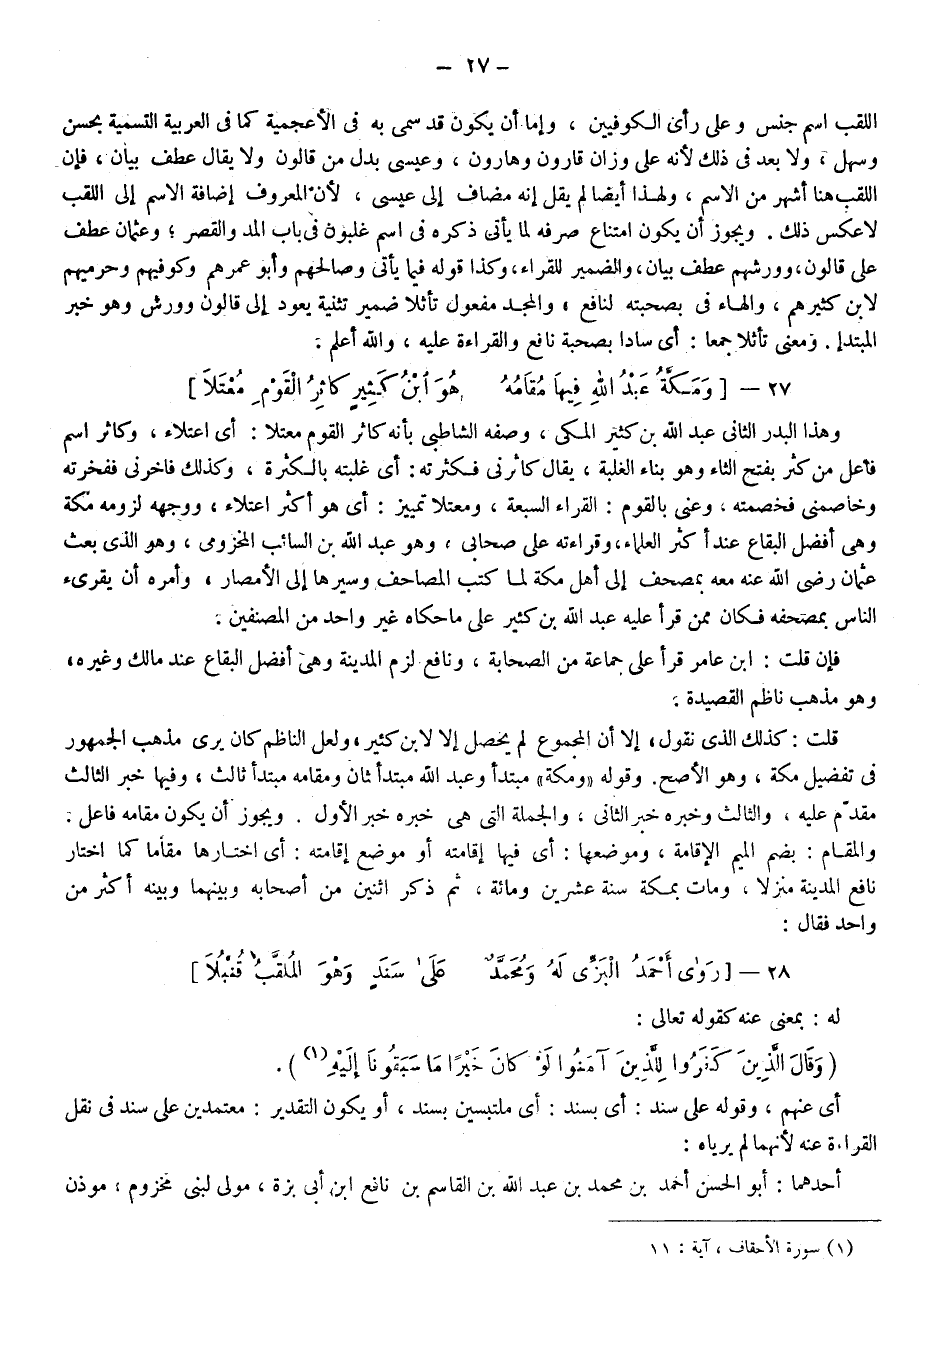 - ٢٧ -
اللقب اسم جنس وعلى رأى الكوفيين ، وإما أن يكون قد سمى به فى الأعجمية كما فى العربية التسمية بحسن
وسهل ، ولا بعد فى ذلك لأنه على وزان قارون وهارون ، وعيسى بدل من قالون ولا يقال عطف بيان ، فإن
اللقب هنا أشهر من الاسم ، ولهذا أيضا لم يقل إنه مضاف إلى عيسى ، لأن المعروف إضافة الاسم إلى اللقب
لاعكس ذلك . ويجوز أن يكون امتناع صرفه لما يأتى ذكره فى اسم غلبون فى باب المد والقصر ؛ وعثمان عطف
على قالون ، وورشهم عطف بيان ، والضمير للقراء ، وكذا قوله فيما يأتى وصالحهم وأبو عمرهم وكوفيهم وحرميهم
لابن كثيرهم ، والهاء فى بصحبته لنافع ، والمجد مفعول تأثلا ضمير تثنية يعود إلى قالون وورش وهو خبر
المبتدإ . ومعنى تأثلا جمعا : أى سادا بصحبة نافع والقراءة عليه ، والله أعلم :
٢٧ – [ وَمَكَّةُ عَبْدُ اللهِ فِيهَا مُقَامُهُ هُوَ ابْنُ كَثِيرٍ كَاثِرُ الْقَوْمِ مُعْتَلاَ ]
وهذا البدر الثانى عبد الله بن كثير المكى ، وصفه الشاطبى بأنه كاثر القوم معتلا : أى اعتلاء ، وكاثر اسم
فاعل من كثر بفتح الثاء وهو بناء الغلبة ، يقال كاثرنى فكثرته : أى غلبته بالكثرة ، وكذلك فاخرنى ففخرته
وخاصمنى فخصمته ، وعنى بالقوم : القراء السبعة ، ومعتلا تمييز : أى هو أكثر اعتلاء ، ووجهه لزومه مكة
وهى أفضل البقاع عند أكثر العلماء ، وقراءته على صحابى ، وهو عبد الله بن السائب المخزومى ، وهو الذى بعث
عثمان رضى الله عنه معه بمصحف إلى أهل مكة لما كتب المصاحف وسيرها إلى الأمصار ، وأمره أن يقرىء
الناس بمصحفه فكان ممن قرأ عليه عبد الله بن كثير على ماحكاه غير واحد من المصنفين .
فإن قلت : ابن عامر قرأ على جماعة من الصحابة ، ونافع لزم المدينة وهى أفضل البقاع عند مالك وغيره ،
وهو مذهب ناظم القصيدة .
قلت : كذلك الذى نقول ، إلا أن المجموع لم يحصل إلا لابن كثير ، ولعل الناظم كان يرى مذهب الجمهور
فى تفضيل مكة ، وهو الأصح . وقوله «ومكة» مبتدأ وعبد الله مبتدأ ثان ومقامه مبتدأ ثالث ، وفيها خبر الثالث
مقدّم عليه ، والثالث وخبره خبر الثانى ، والجملة التى هى خبره خبر الأول . ويجوز أن يكون مقامه فاعل :
والمقام : بضم الميم الإقامة ، وموضعها : أى فيها إقامته أو موضع إقامته : أى اختارها مقاما كما اختار
نافع المدينة منزلا ، ومات بمكة سنة عشرين ومائة ، ثم ذكر اثنين من أصحابه وبينهما وبينه أكثر من
واحد فقال :
٢٨ – [ رَوَى أَحْمَدُ الْبَزِّى لَهُ وَمُحَمَّدٌ عَلَى سَنَدٍ وَهْوَ الْمُلَقَّبُ قُنْبُلاَ ]
له : بمعنى عنه كقوله تعالى :
(وَقَالَ الَّذِينَ كَفَرُوا لِلَّذِينَ آمَنُوا لَوْ كَانَ خَيْرًا مَا سَبَقُونَا إِلَيْهِ (١) ) .
أى عنهم ، وقوله على سند : أى بسند : أى ملتبسين بسند ، أو يكون التقدير : معتمدين على سند فى نقل
القراءة عنه لأنهما لم يرياه :
أحدهما : أبو الحسن أحمد بن محمد بن عبد الله بن القاسم بن نافع ابن أبى بزة ، مولى لبنى مخزوم ، موذن
(١) سورة الأحقاف ، آية : ١١